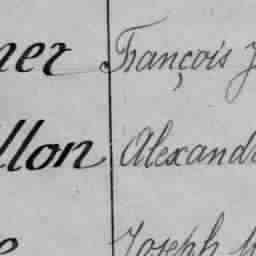 ner François J
llon Alexand
e Joseph